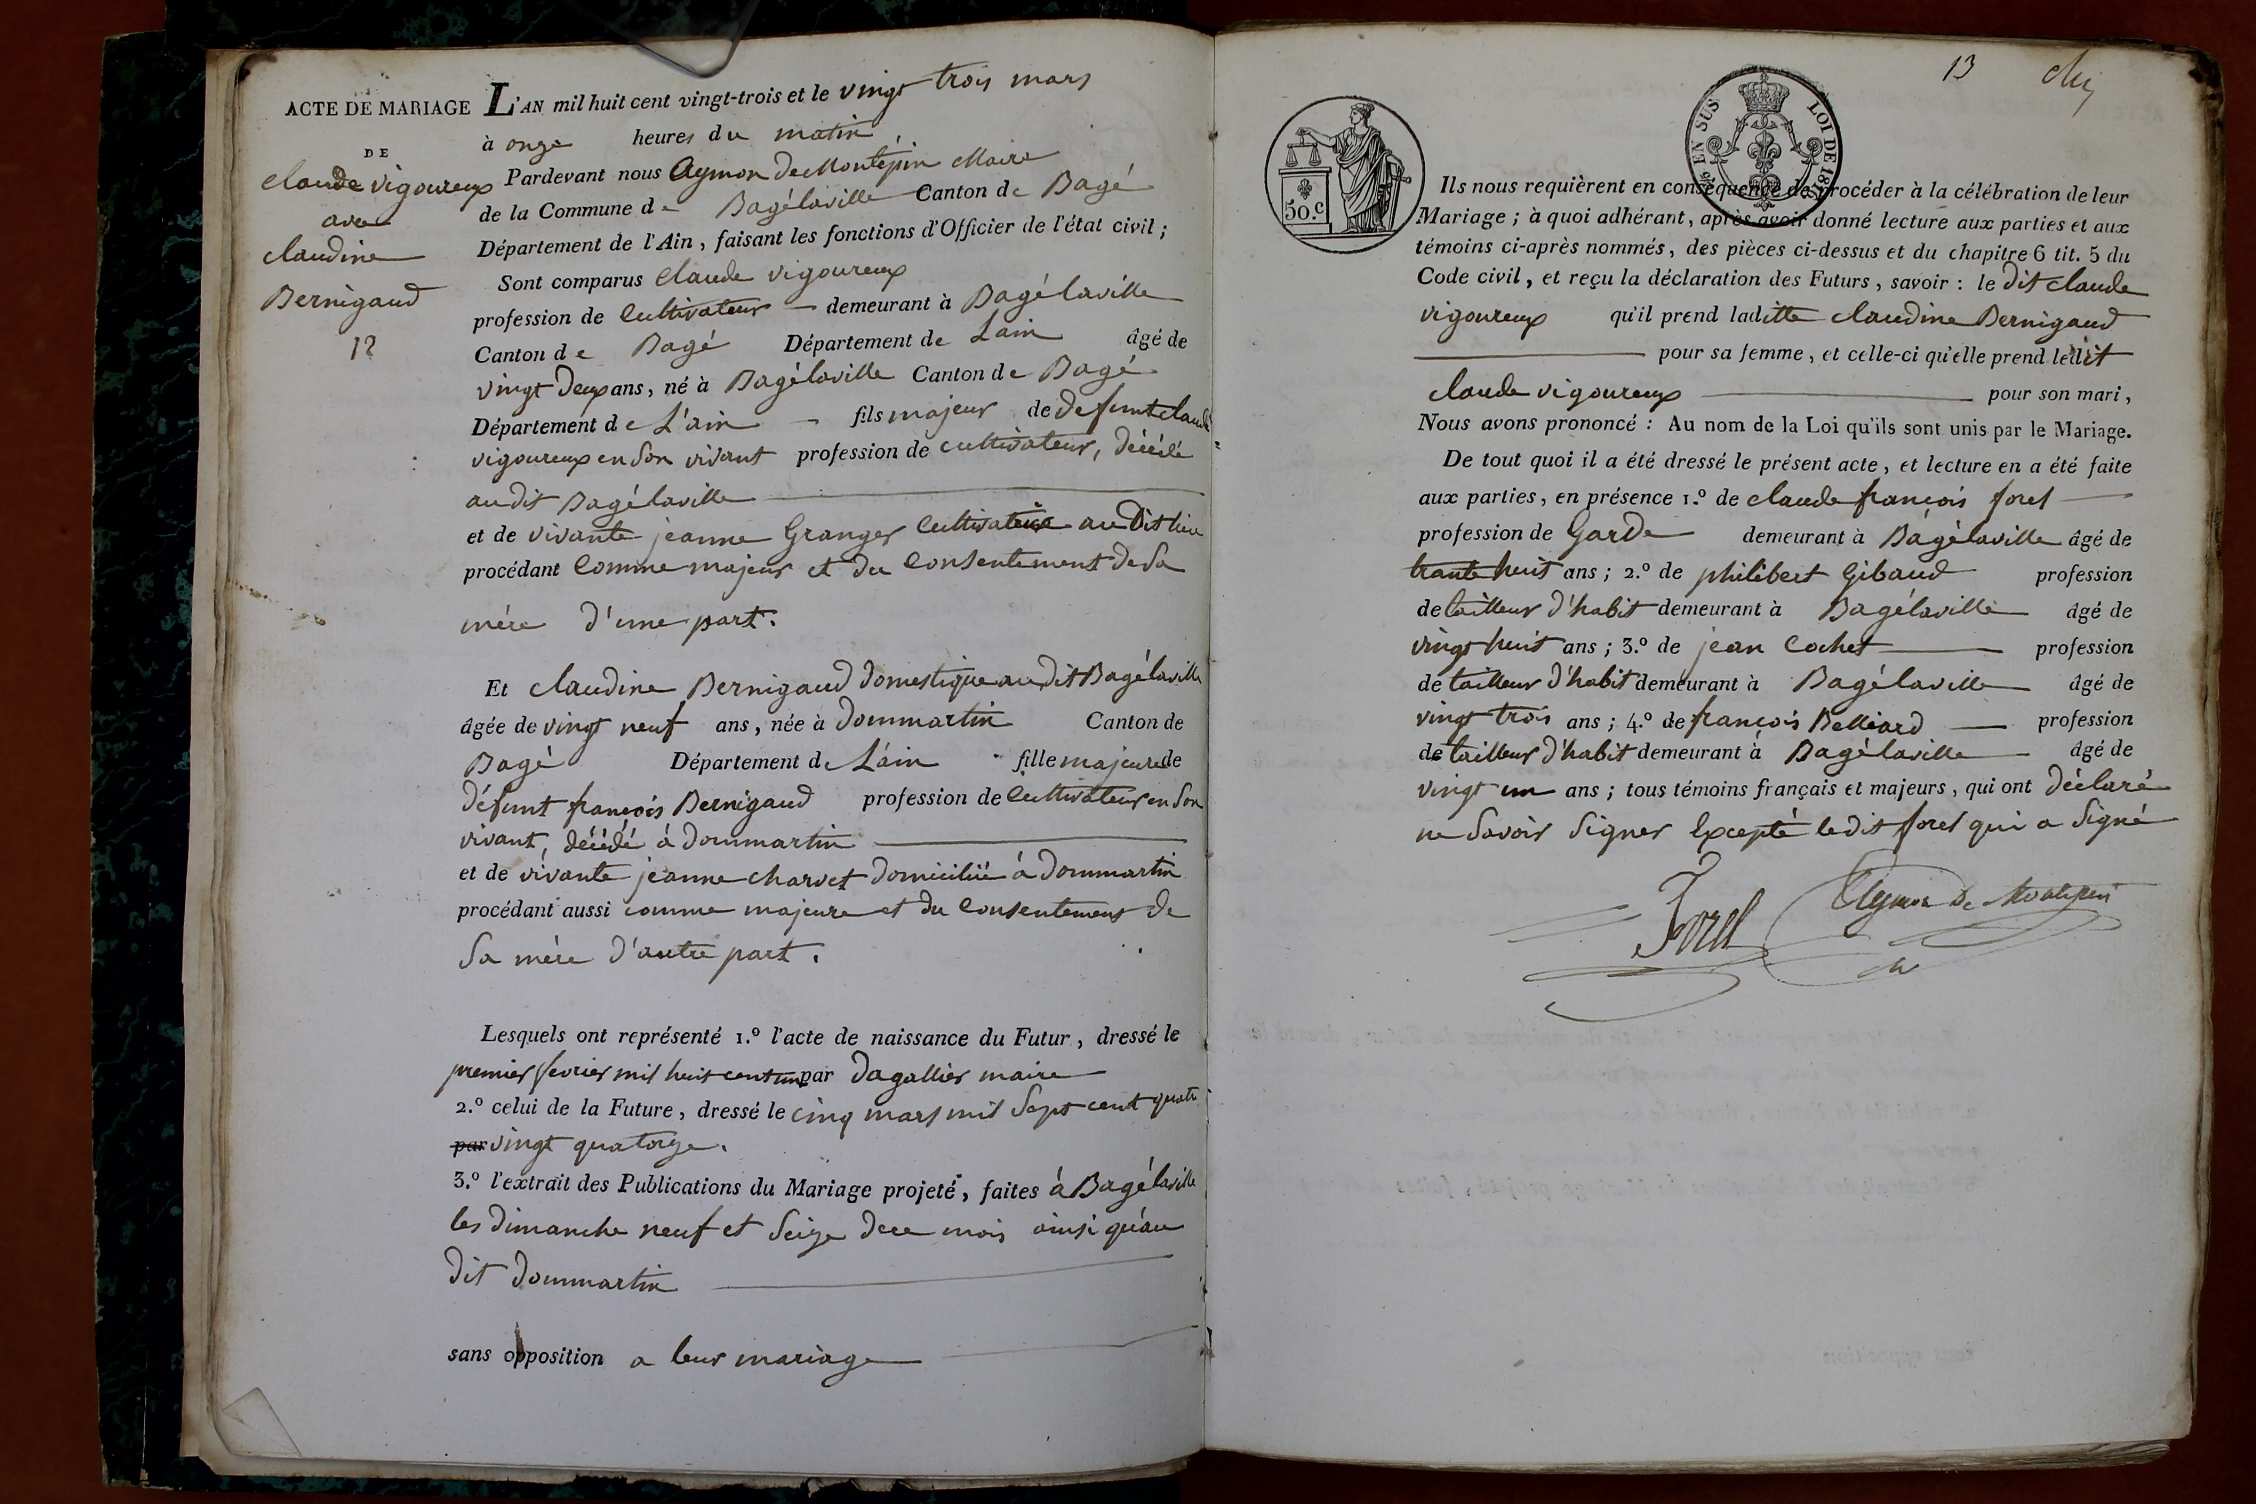 ACTE DE MARIAGE
DE
claude vigoureux
avec
claudine
Bernigaud
12
L'AN mil huit cent vingt-trois et le vingt trois mars
à onze heures du matin
Pardevant nous Aymon De Montépin Maire
de la Commune de Bagélaville Canton de Bagé
Département de l'Ain, faisant les fonctions d'Officier de l'état civil ;
Sont comparus Claude vigoureux
profession de Cultivateur demeurant à Bagélaville
Canton de Bagé Département de Lain âgé de
vingt Deux ans, né à Bagélaville Canton de Bagé
Département de L'ain fils majeur de defunt claude
vigoureux en son vivant profession de cultivateur, décédé
au dit Bagélaville
et de vivante jeanne Granger Cultivatrice au Dit lieu
procédant Comme majeur et du Consentement De Sa
mére D'une part.
Et claudine Bernigaud Domestique au dit Bagélaville
âgée de vingt neuf ans, née à Dommartin Canton de
Bagé Département de L'ain fille majeure de
Défunt françois Bernigaud profession de Cultivateur en Son
vivant, décédé à Dommartin
et de vivante jeanne charvet Domiciliée à Dommartin
procédant aussi comme majeure et du Consentement De
Sa mère D'autre part.
Lesquels ont représenté 1.º l'acte de naissance du Futur, dressé le
premier fevrier mil huit cent un par Dagallier maire
2.º celui de la Future, dressé le cinq mars mil Sept cent quatre
par vingt quatorze.
3.º l'extrait des Publications du Mariage projeté, faites à Bagélaville
les Dimanche neuf et Seize De ce mois ainsi qu'au
Dit Dommartin
sans opposition a leur mariage
13
50.c
EN SUS
LOI DE 1816
Ils nous requièrent en conséquence de procéder à la célébration de leur
Mariage ; à quoi adhérant, après avoir donné lecture aux parties et aux
témoins ci-après nommés, des pièces ci-dessus et du chapitre 6 tit. 5 du
Code civil, et reçu la déclaration des Futurs, savoir : le Dit claude
vigoureux qu'il prend laditte claudine Bernigaud
pour sa femme, et celle-ci qu'elle prend ledit
claude vigoureux pour son mari,
Nous avons prononcé : Au nom de la Loi qu'ils sont unis par le Mariage.
De tout quoi il a été dressé le présent acte, et lecture en a été faite
aux parties, en présence 1.º de claude françois forel
profession de Garde demeurant à Bagélaville âgé de
trante huit ans ; 2.º de philibert Gibaud profession
de tailleur D'habit demeurant à Bagélaville âgé de
vingt huit ans ; 3.º de jean Cochet profession
de tailleur D'habit demeurant à Bagélaville âgé de
vingt trois ans ; 4.º de françois Belliard profession
de tailleur D'habit demeurant à Bagélaville âgé de
vingt un ans ; tous témoins français et majeurs, qui ont Déclaré
ne Savoir Signer Excepté ledit forel qui a Signé
Forel
Aymon De Montépin